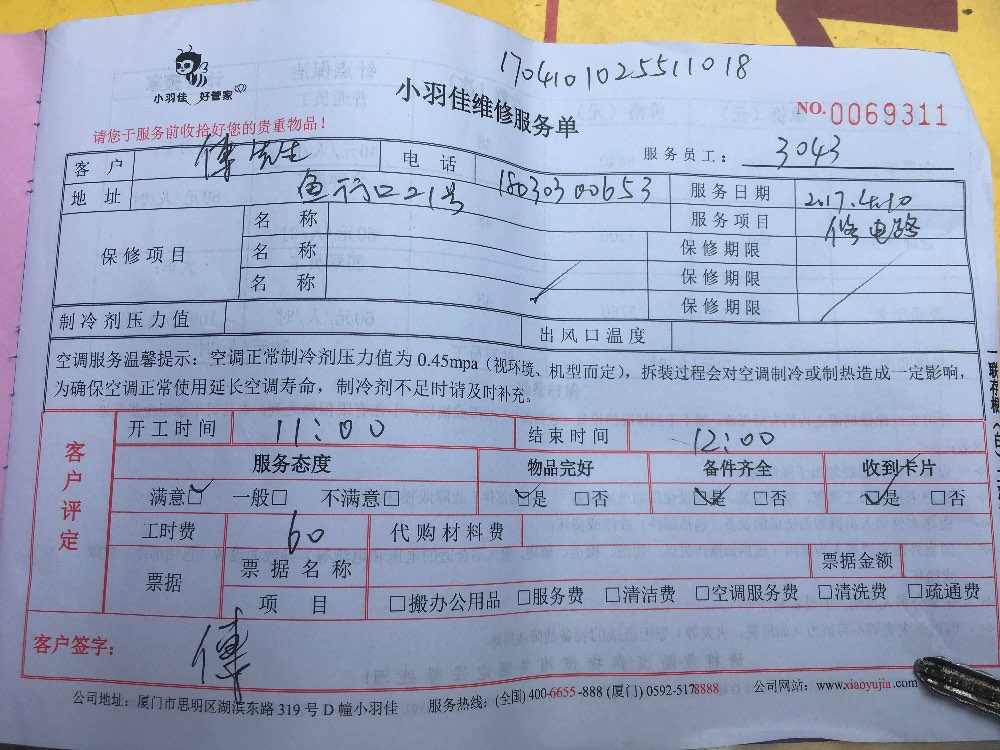 1704101025511018
小羽佳 好管家
小羽佳维修服务单
NO.0069311
请您于服务前收拾好您的贵重物品！
服务员工： 3043
客户 傅先生 电话 18030300653 服务日期 2017.4.10
地址 鱼行口21号 服务项目 修电路
保修项目 名称 保修期限
名称 保修期限
名称 保修期限
制冷剂压力值 出风口温度
空调服务温馨提示：空调正常制冷剂压力值为 0.45mpa（视环境、机型而定），拆装过程会对空调制冷或制热造成一定影响，
为确保空调正常使用延长空调寿命，制冷剂不足时请及时补充。
客户评定
开工时间 11:00 结束时间 12:00
服务态度 物品完好 备件齐全 收到卡片
满意☑ 一般□ 不满意□ ☑是 □否 ☑是 □否 ☑是 □否
工时费 60 代购材料费
票据 票据名称 票据金额
项目 □搬办公用品 □服务费 □清洁费 □空调服务费 □清洗费 □疏通费
客户签字： 傅
公司地址：厦门市思明区湖滨东路 319 号 D 幢小羽佳 服务热线：(全国) 400-6655-888 (厦门) 0592-5178888 公司网站：www.xiaoyujia.com